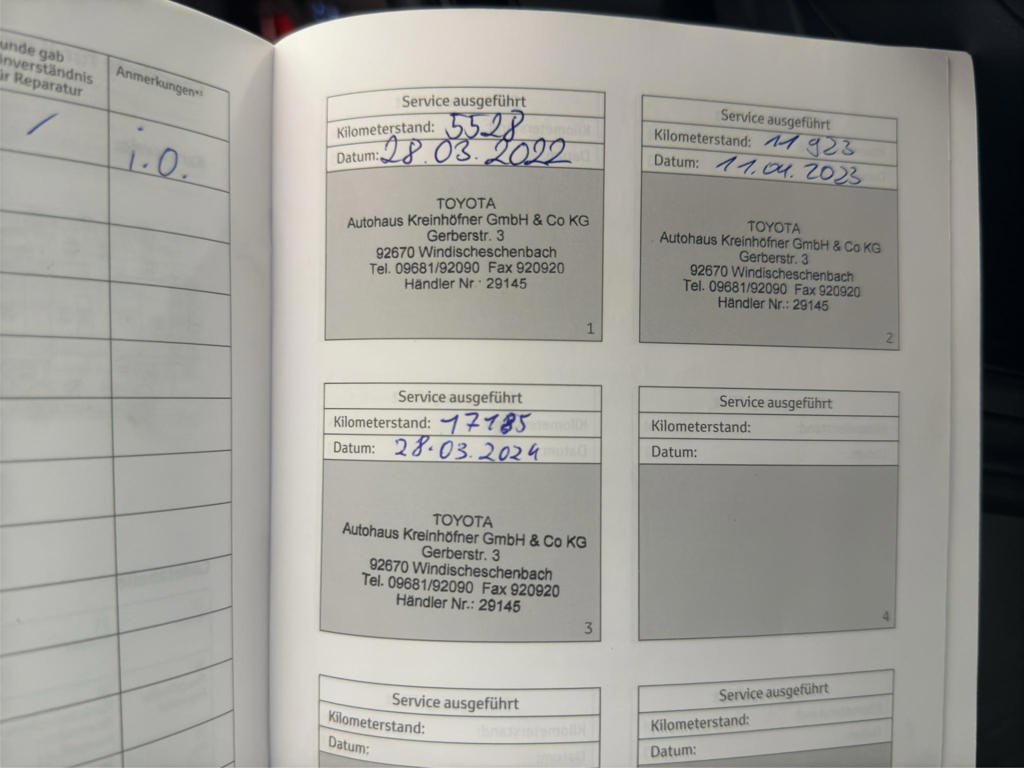 unde gab
inverständnis
ür Reparatur
Anmerkungen*³
/
i.O.
Service ausgeführt
Kilometerstand: 5528
Datum: 28.03.2022
TOYOTA
Autohaus Kreinhöfner GmbH & Co KG
Gerberstr. 3
92670 Windischeschenbach
Tel. 09681/92090 Fax 920920
Händler Nr.: 29145
1
Service ausgeführt
Kilometerstand: 11 923
Datum: 11.04.2023
TOYOTA
Autohaus Kreinhöfner GmbH & Co KG
Gerberstr. 3
92670 Windischeschenbach
Tel. 09681/92090 Fax 920920
Händler Nr.: 29145
2
Service ausgeführt
Kilometerstand: 17185
Datum: 28.03.2024
TOYOTA
Autohaus Kreinhöfner GmbH & Co KG
Gerberstr. 3
92670 Windischeschenbach
Tel. 09681/92090 Fax 920920
Händler Nr.: 29145
3
Service ausgeführt
Kilometerstand:
Datum:
4
Service ausgeführt
Kilometerstand:
Datum:
Service ausgeführt
Kilometerstand:
Datum: